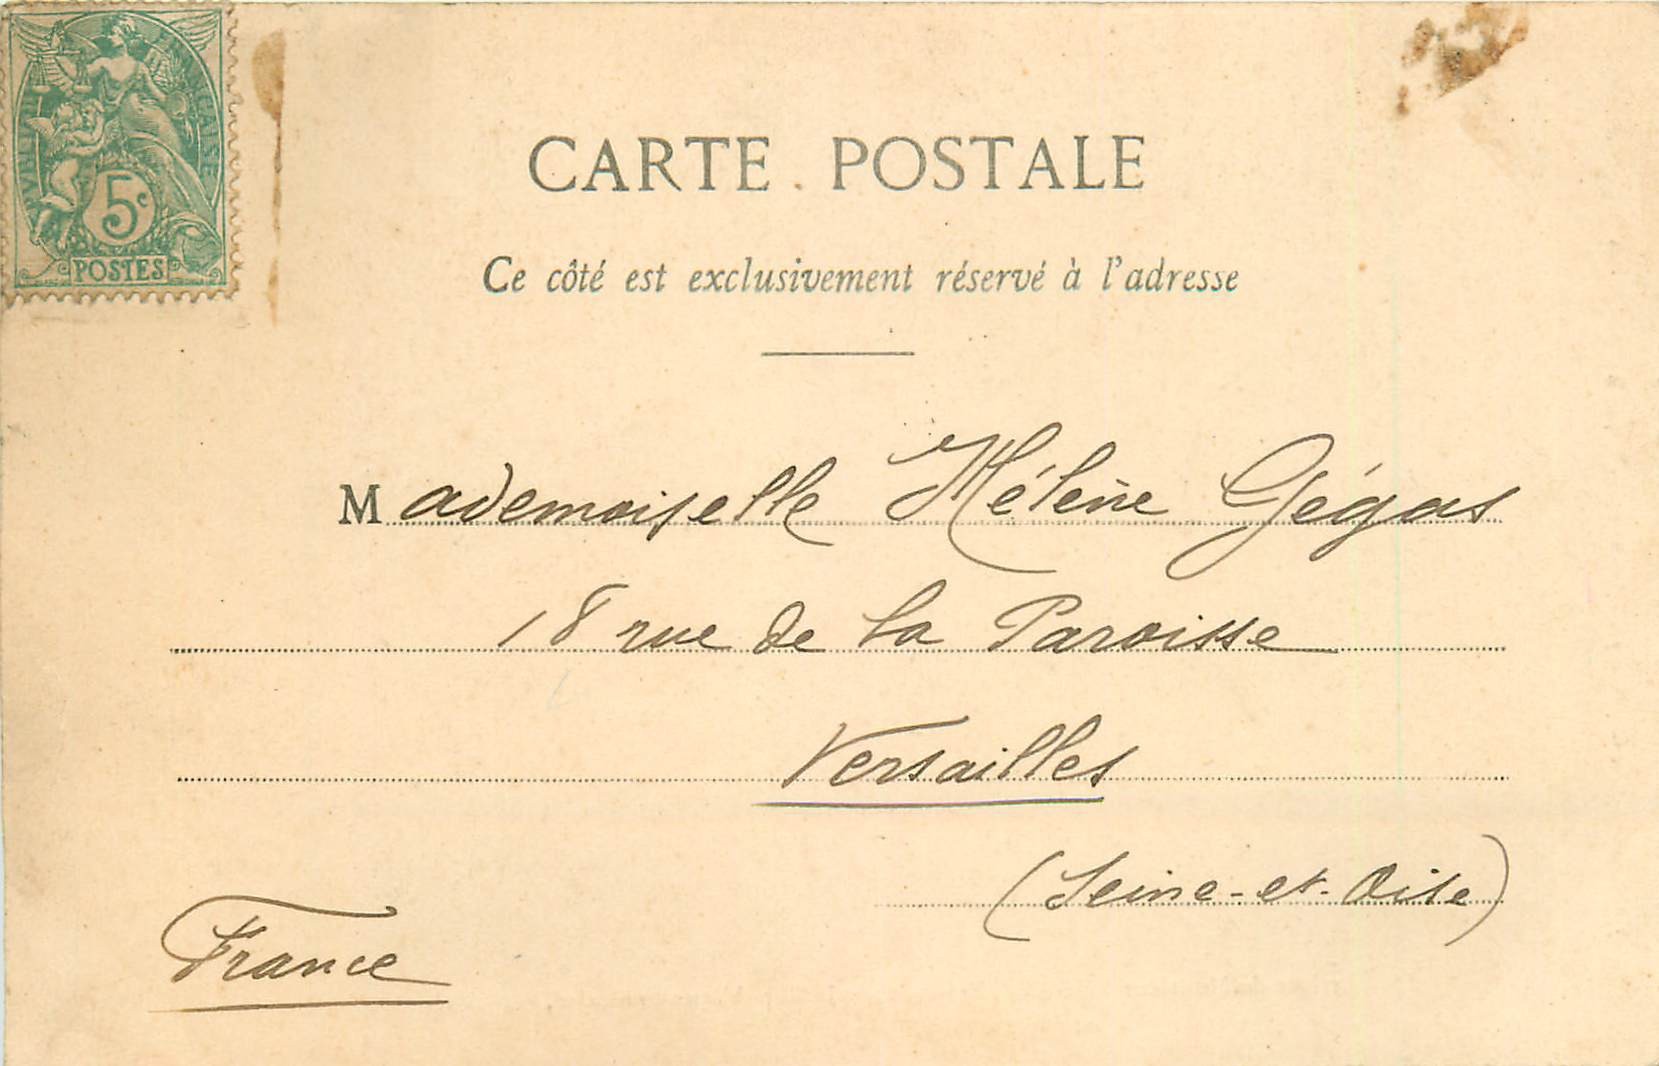 RÉPUBLIQUE FRANÇAISE
5c
POSTES
CARTE POSTALE
Ce côté est exclusivement réservé à l'adresse
Mademoiselle Hélène Gégas
18 rue de la Paroisse
Versailles
(Seine-et-Oise)
France